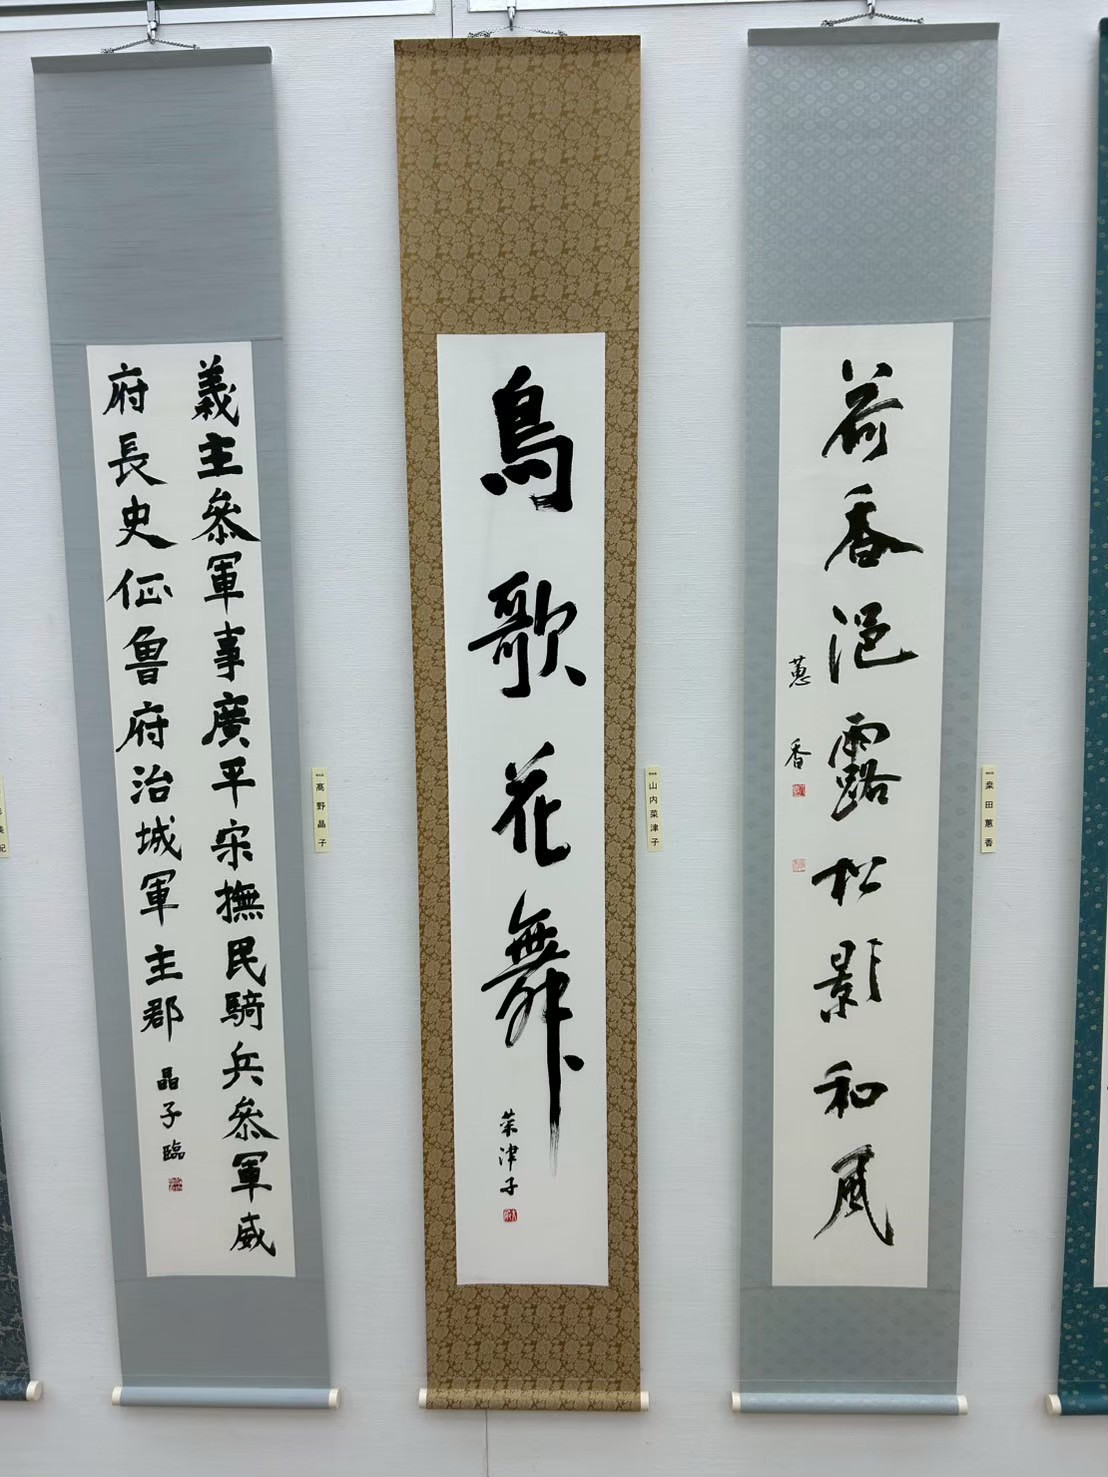 荷香浥露松影和風
蕙香
桒田蕙香
鳥歌花舞
菜津子
山内菜津子
義主叅軍事廣平宋撫民騎兵叅軍威
府長史征魯府治城軍主郡
晶子臨
高野晶子